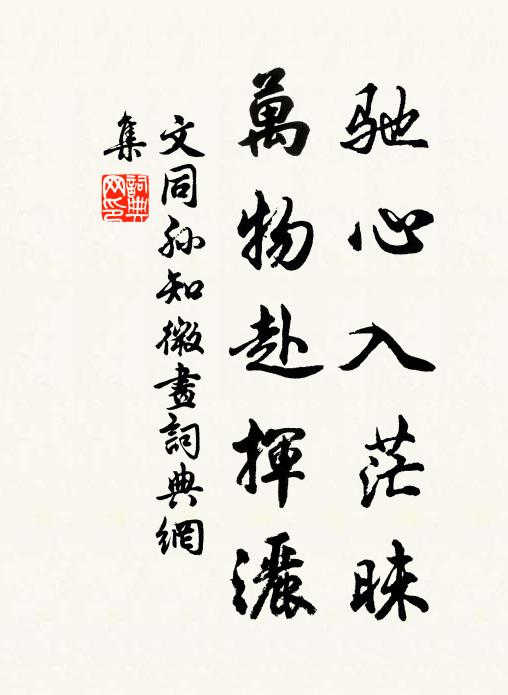 馳心入茫昧
萬物赴揮灑
文同孙知微畫詞典網
集
詞典
网印